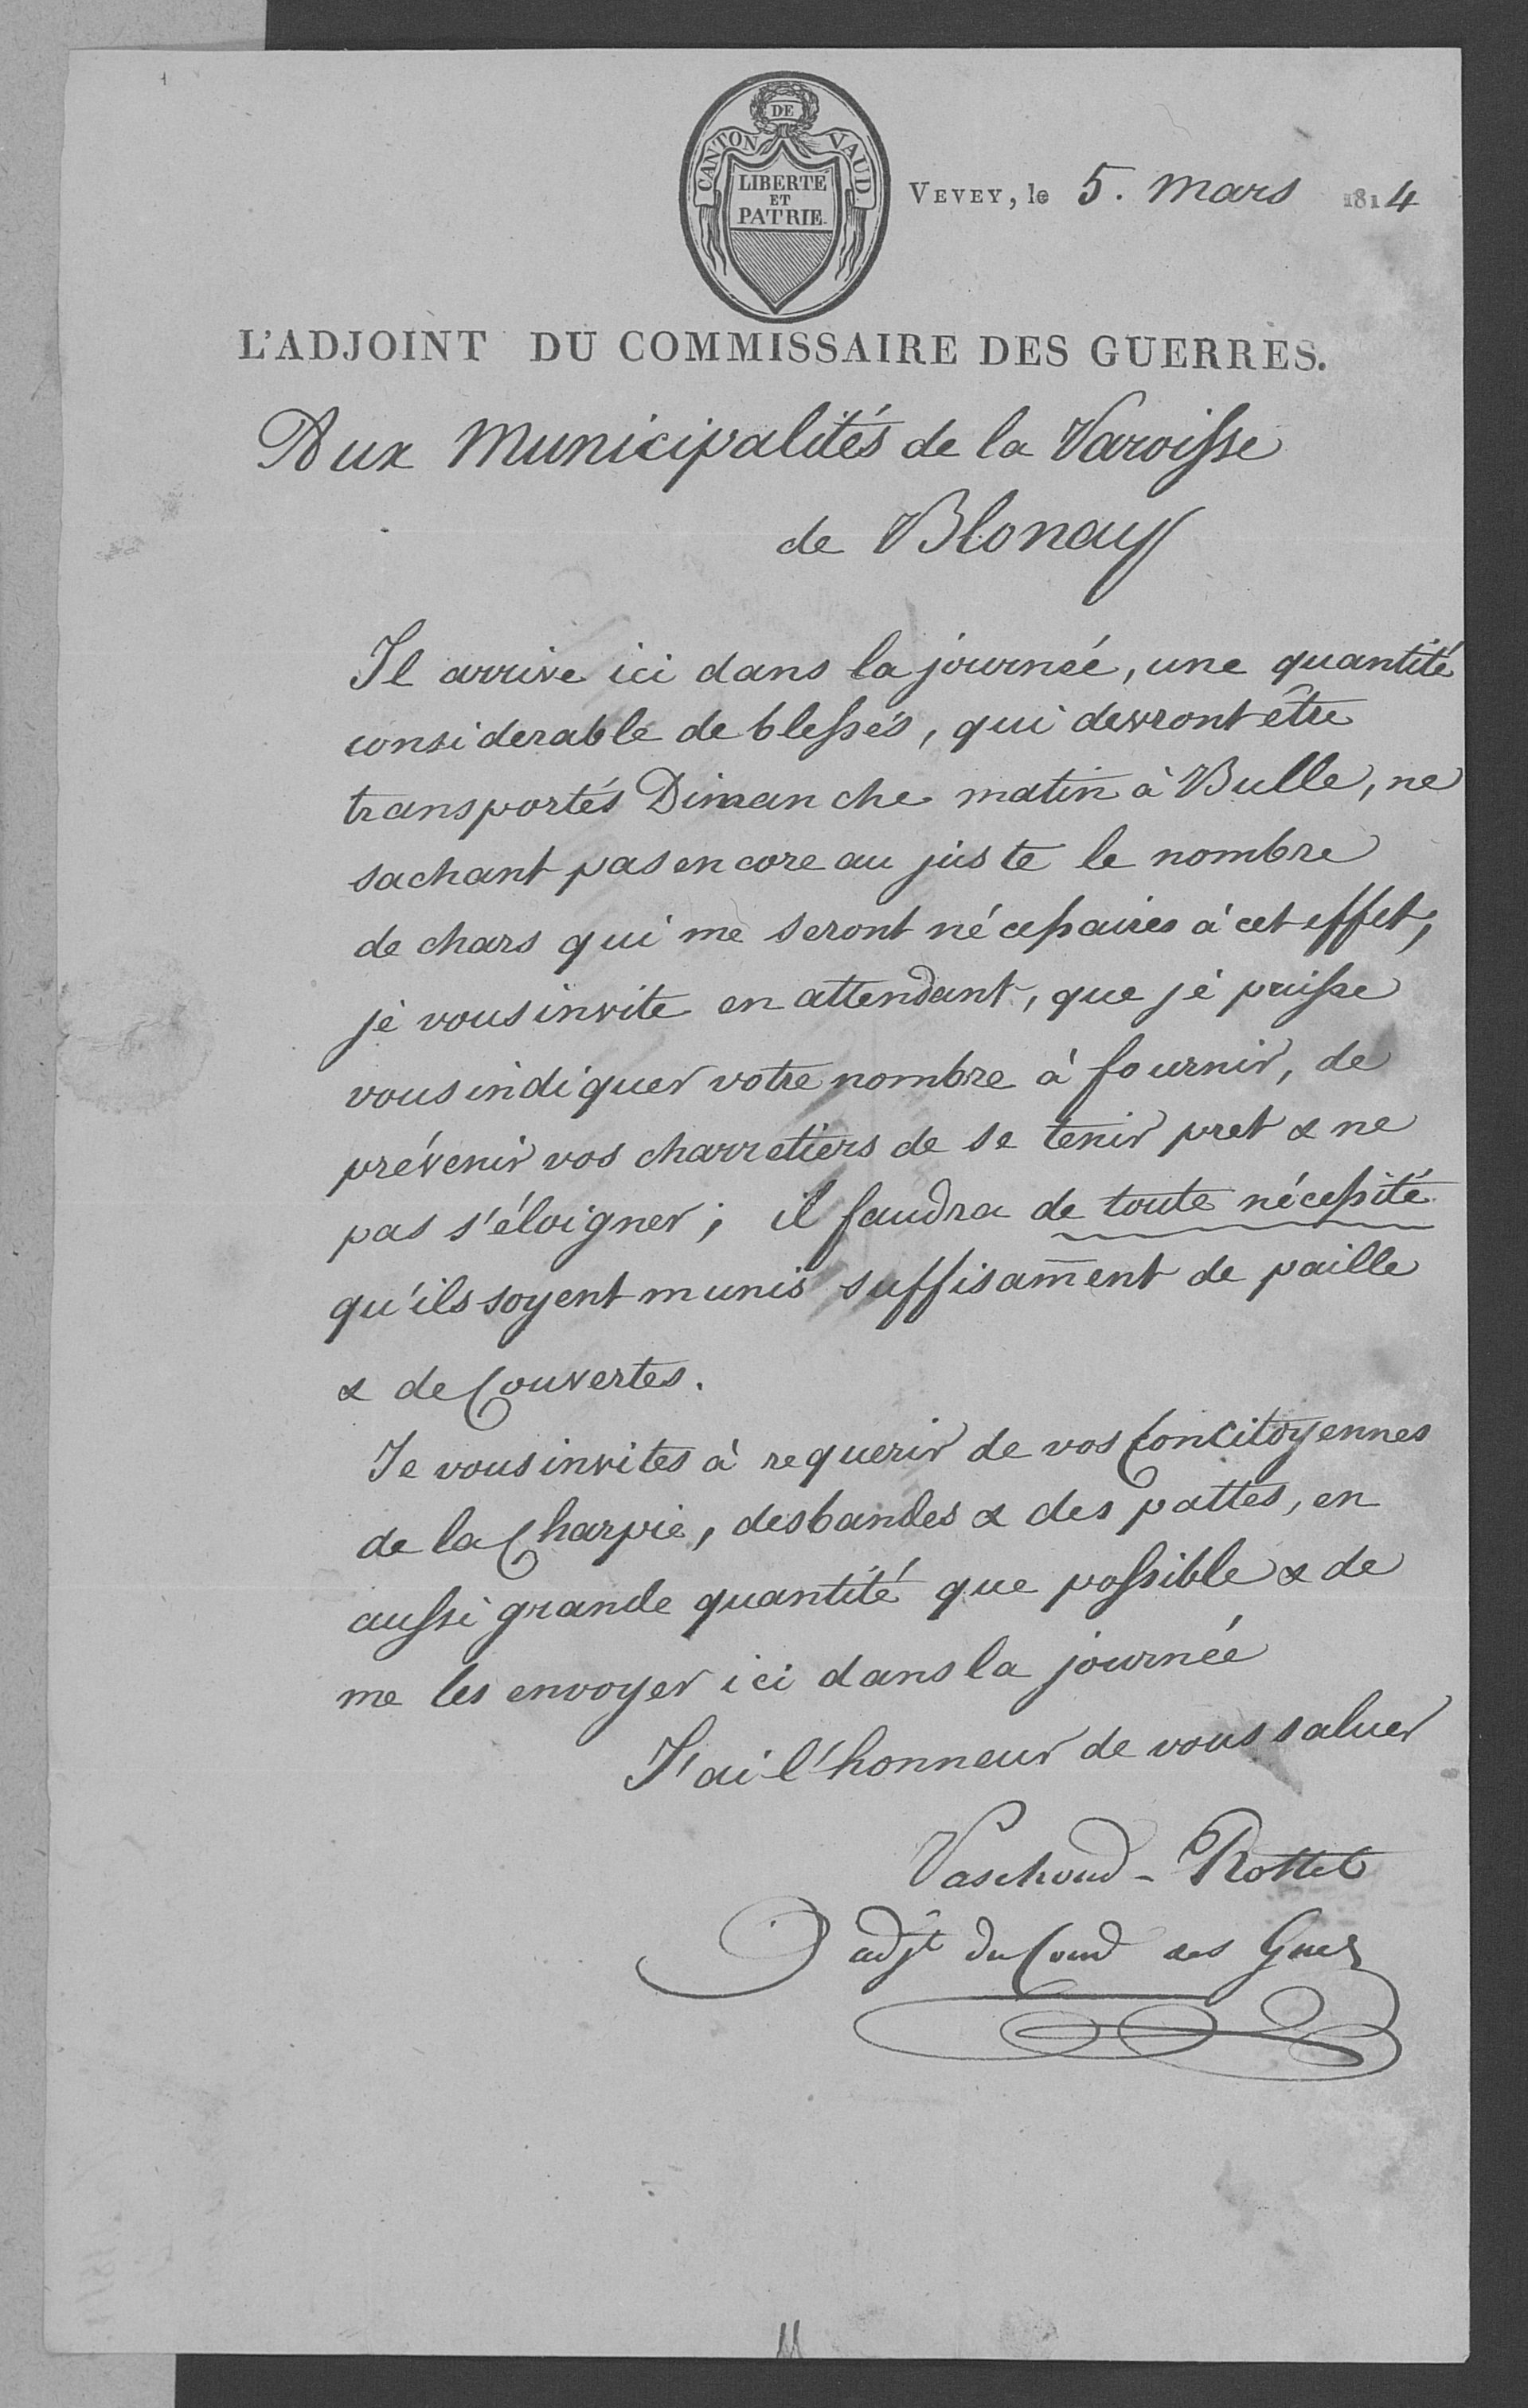 CANTON DE VAUD.
LIBERTE
ET
PATRIE.
VEVEY, le 5. Mars 1814
L'ADJOINT DU COMMISSAIRE DES GUERRES.
Aux Municipalités de la Paroisse
de Blonay
Il arrive ici dans la journée, une quantité
considerable de blessés, qui devront être
transportés Dimanche matin à Bulle, ne
sachant pas encore au juste le nombre
de chars qui me seront nécessaires à cet effet,
je vous invite en attendant, que je puisse
vous indiquer votre nombre à fournir, de
prévenir vos charretiers de se tenir pret & ne
pas s'éloigner; il faudra de toute nécessité
qu'ils soyent munis suffisam̅ent de paille
& de Couvertes.
Je vous invites à requerir de vos Concitoyennes
de la Charpie, des bandes & des pattes, en
aussi grande quantité que possible & de
me les envoyer ici dans la journée
J'ai l'honneur de vous saluer
Paschoud-Rottet
adjt du des